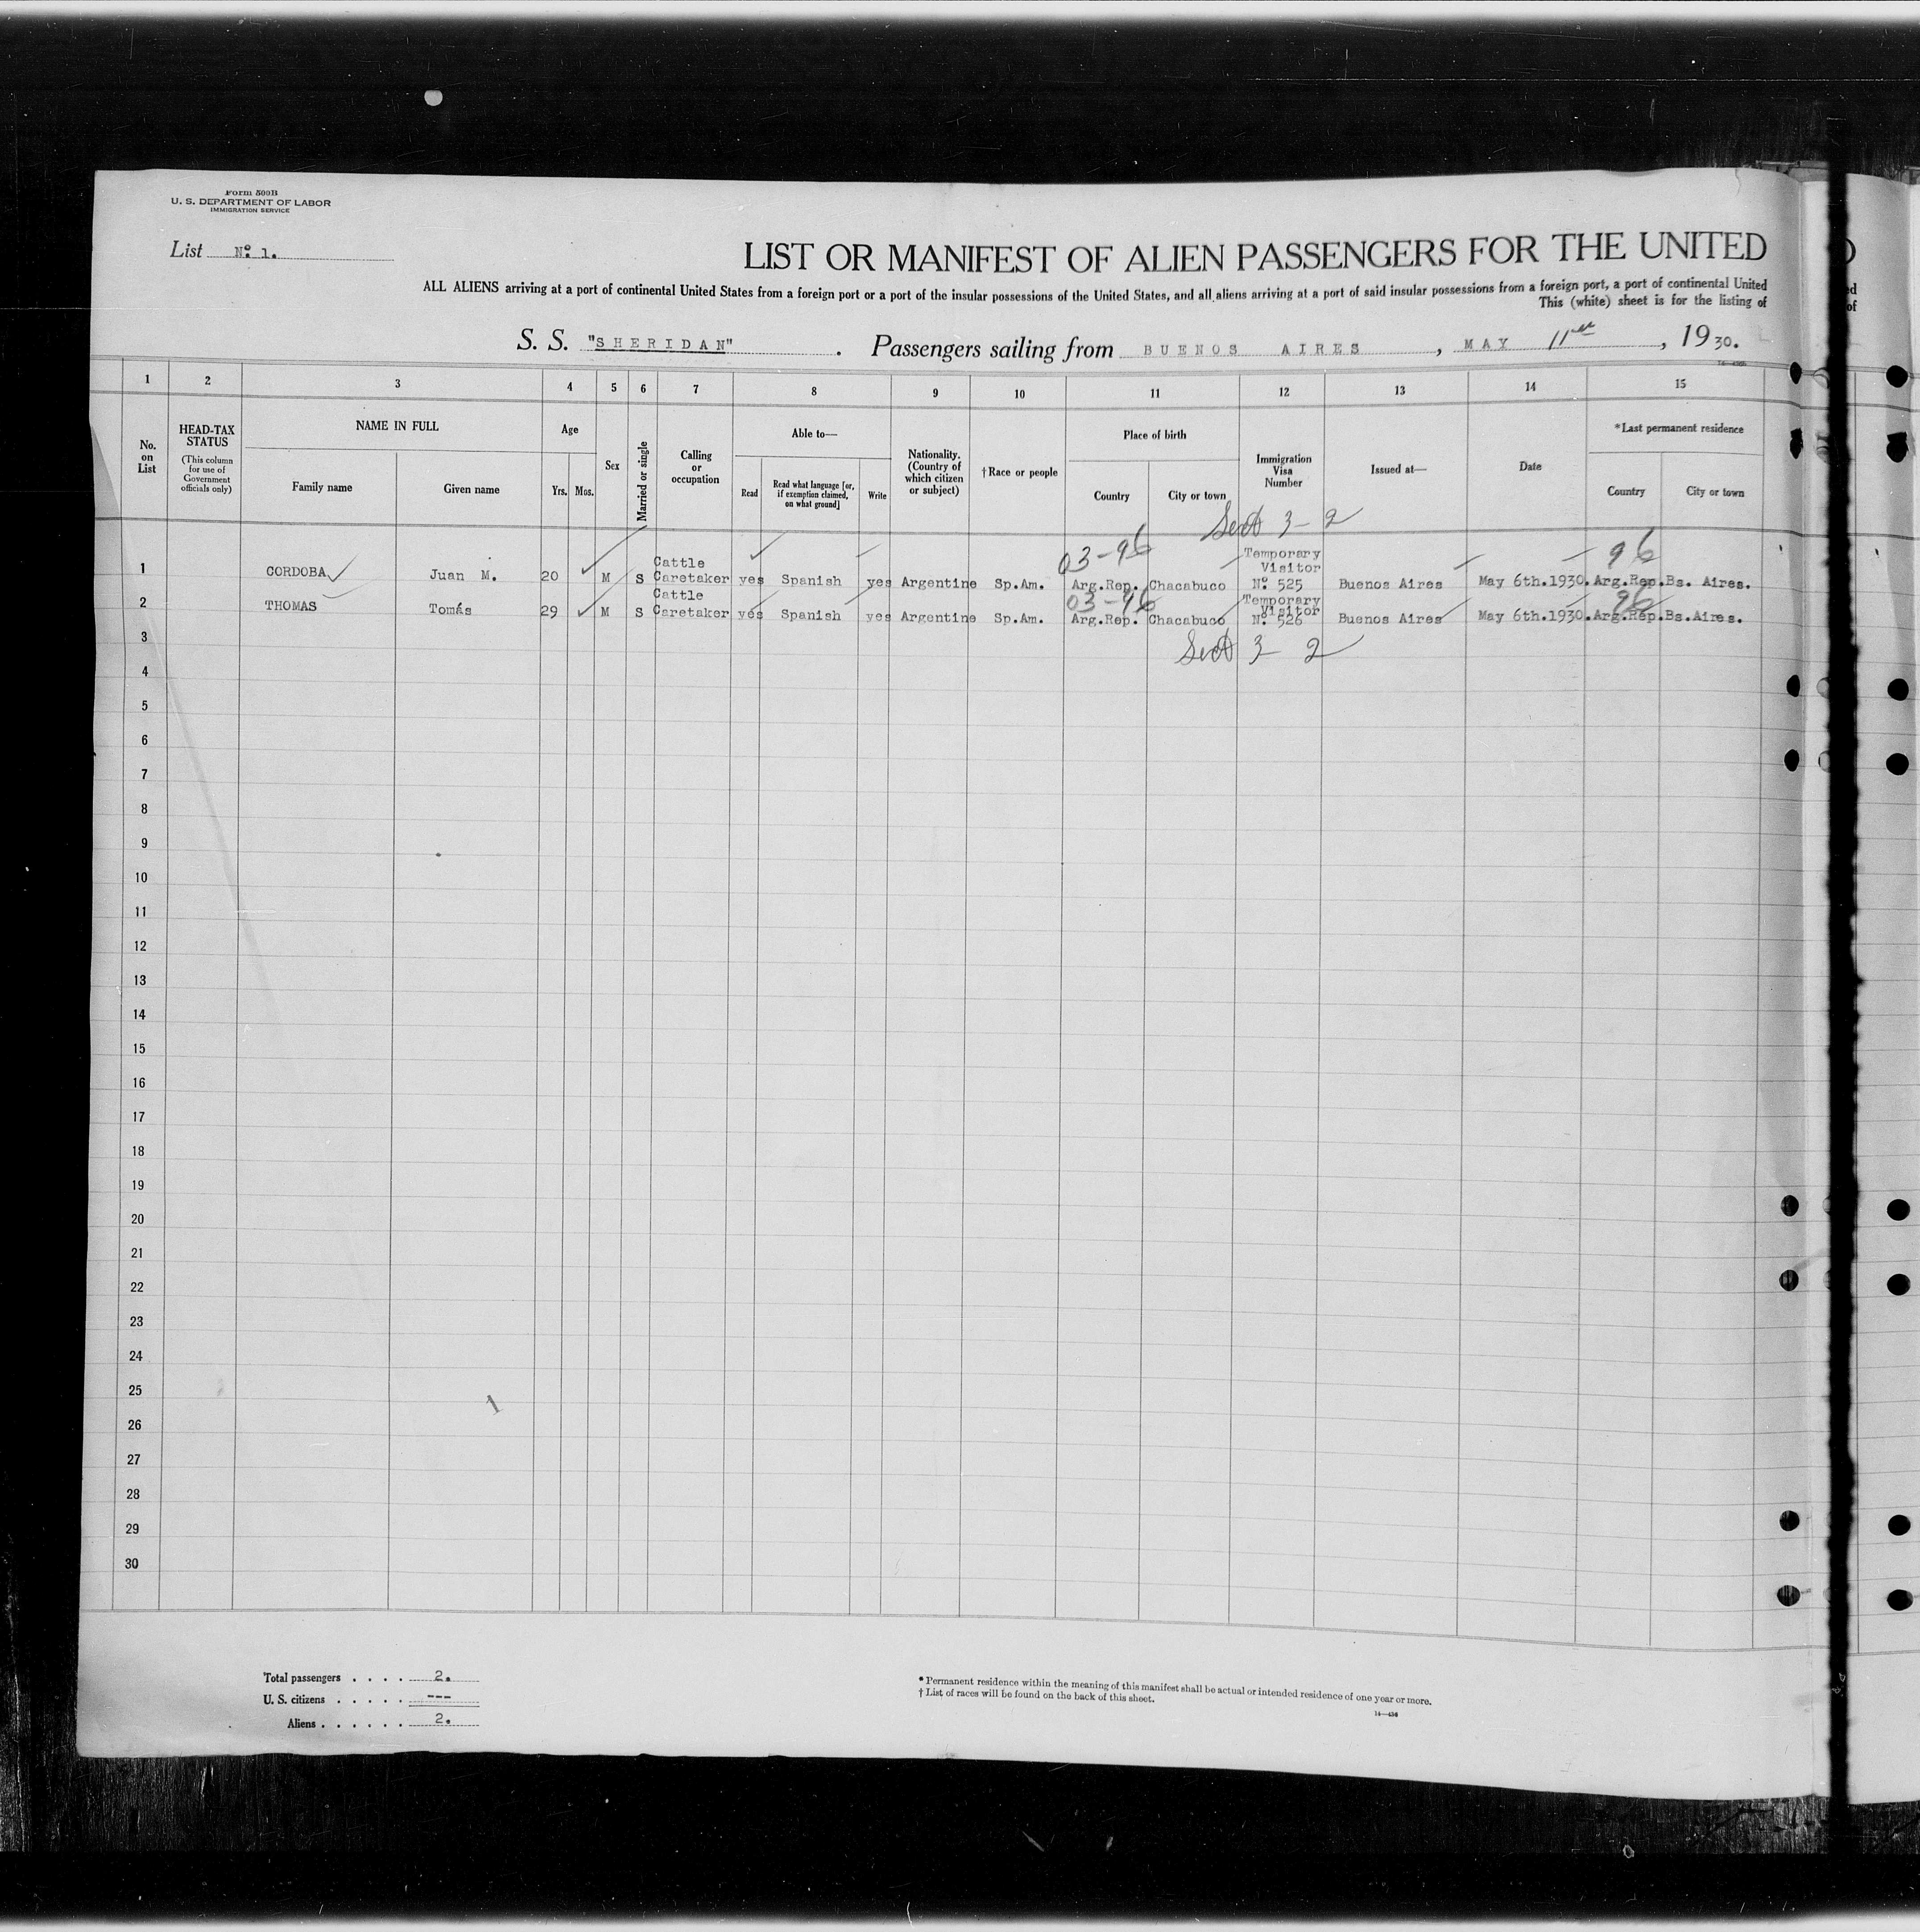 Form 500B
U. S. DEPARTMENT OF LABOR
IMMIGRATION SERVICE
List Nº 1.
LIST OR MANIFEST OF ALIEN PASSENGERS FOR THE UNITED
ALL ALIENS arriving at a port of continental United States from a foreign port or a port of the insular possessions of the United States, and all aliens arriving at a port of said insular possessions from a foreign port, a port of continental United
This (white) sheet is for the listing of
S. S. "SHERIDAN" . Passengers sailing from BUENOS AIRES , MAY 11th , 1930.
1 2 3 4 5 6 7 8 9 10 11 12 13 14 15
No. on List
HEAD-TAX STATUS
(This column for use of Government officials only)
NAME IN FULL
Family name
Given name
Age
Yrs. Mos.
Sex
Married or single
Calling or occupation
Able to—
Read
Read what language [or, if exemption claimed, on what ground]
Write
Nationality. (Country of which citizen or subject)
†Race or people
Place of birth
Country
City or town
Immigration Visa Number
Issued at—
Date
*Last permanent residence
Country
City or town
3-2
03-96
96
1 CORDOBA Juan M. 20 M S Cattle Caretaker yes Spanish yes Argentine Sp.Am. Arg.Rep. Chacabuco Temporary Visitor Nº 525 Buenos Aires May 6th.1930. Arg.Rep. Bs. Aires.
03-96
96
2 THOMAS Tomás 29 M S Cattle Caretaker yes Spanish yes Argentine Sp.Am. Arg.Rep. Chacabuco Temporary Visitor Nº 526 Buenos Aires May 6th.1930. Arg.Rep. Bs.Aires.
3
3 2
4
5
6
7
8
9
10
11
12
13
14
15
16
17
18
19
20
21
22
23
24
25
26
27
28
29
30
Total passengers . . . . 2.
U. S. citizens . . . . . ---
Aliens . . . . . . 2.
* Permanent residence within the meaning of this manifest shall be actual or intended residence of one year or more.
† List of races will be found on the back of this sheet.
14—436